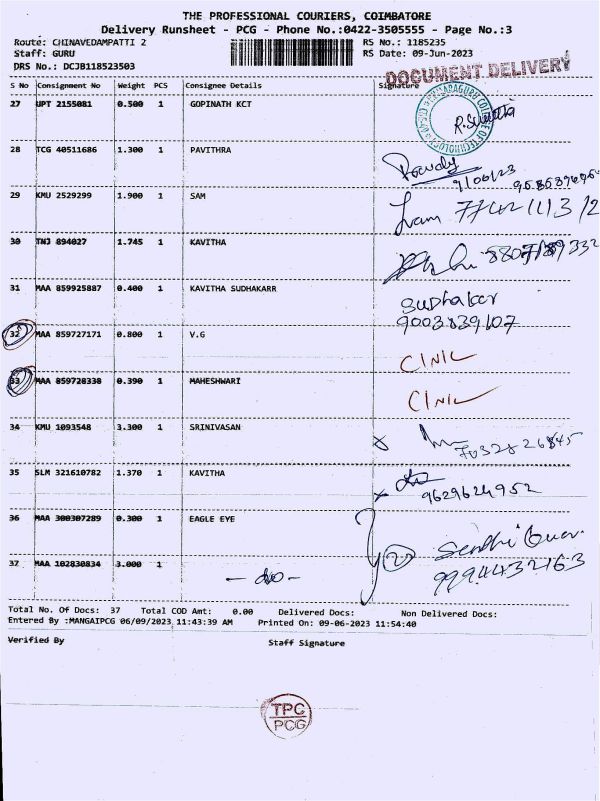 THE PROFESSIONAL COURIERS, COIMBATORE
Delivery Runsheet - PCG - Phone No.:0422-3505555 - Page No.:3
Route: CHINAVEDAMPATTI 2 RS No.: 1185235
Staff: GURU RS Date: 09-Jun-2023
DRS No.: DCJB118523503
DOCUMENT DELIVERY
S No Consignment No Weight PCS Consignee Details Signature
27 UPT 2155081 0.500 1 GOPINATH KCT
28 TCG 40511686 1.300 1 PAVITHRA
29 KMU 2529299 1.900 1 SAM
30 TNJ 894027 1.745 1 KAVITHA
31 MAA 859925887 0.400 1 KAVITHA SUDHAKARR Sudhakar
9003839107
32 MAA 859727171 0.800 1 V.G
33 MAA 859728338 0.390 1 MAHESHWARI
34 KMU 1093548 3.300 1 SRINIVASAN
35 SLM 321610782 1.370 1 KAVITHA
9629624952
36 MAA 300307289 0.300 1 EAGLE EYE
37 MAA 102830834 3.000 1
9994432163
Total No. Of Docs: 37 Total COD Amt: 0.00 Delivered Docs: Non Delivered Docs:
Entered By :MANGAIPCG 06/09/2023 11:43:39 AM Printed On: 09-06-2023 11:54:40
Verified By Staff Signature
TPC
PCG